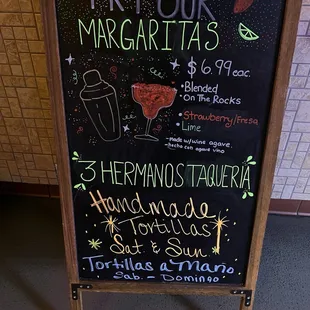 TRY OUR
MARGARITAS
$6.99 eac.
• Blended
• On The Rocks
• Strawberry/Fresa
• Lime
• made w/wine agave.
• hecho con agave vino
3 HERMANOS TAQUERIA
Handmade
Tortillas
Sat & Sun
Tortillas a Mano
Sab. - Domingo